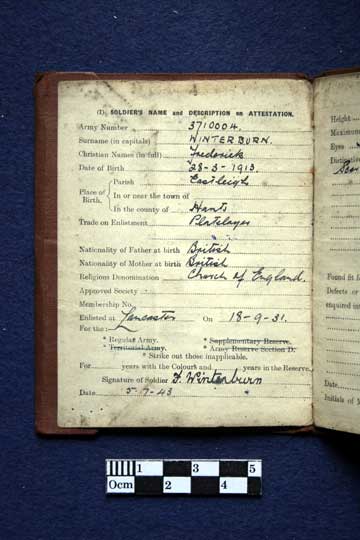 (I) SOLDIER'S NAME and DESCRIPTION on ATTESTATION.
Army Number 3710004.
Surname (in capitals) WINTERBURN.
Christian Names (in full) Frederick
Date of Birth 28-3-1913.
Place of Birth. Parish Eastleigh
In or near the town of
In the county of Hants
Trade on Enlistment Platelayer
Nationality of Father at birth British
Nationality of Mother at birth British
Religious Denomination Church of England.
Approved Society
Membership No.
Enlisted at Lancaster On 18-9-31.
For the:
* Regular Army. * Supplementary Reserve.
* Territorial Army. * Army Reserve Section D.
* Strike out those inapplicable.
For years with the Colours and years in the Reserve.
Signature of Soldier F. Winterburn
Date 5-7-43
Height
Maximum
Eyes
Distinctive
Scar
Found fit for
Defects or
enlistment
Initials of M
1 3 5
0cm 2 4